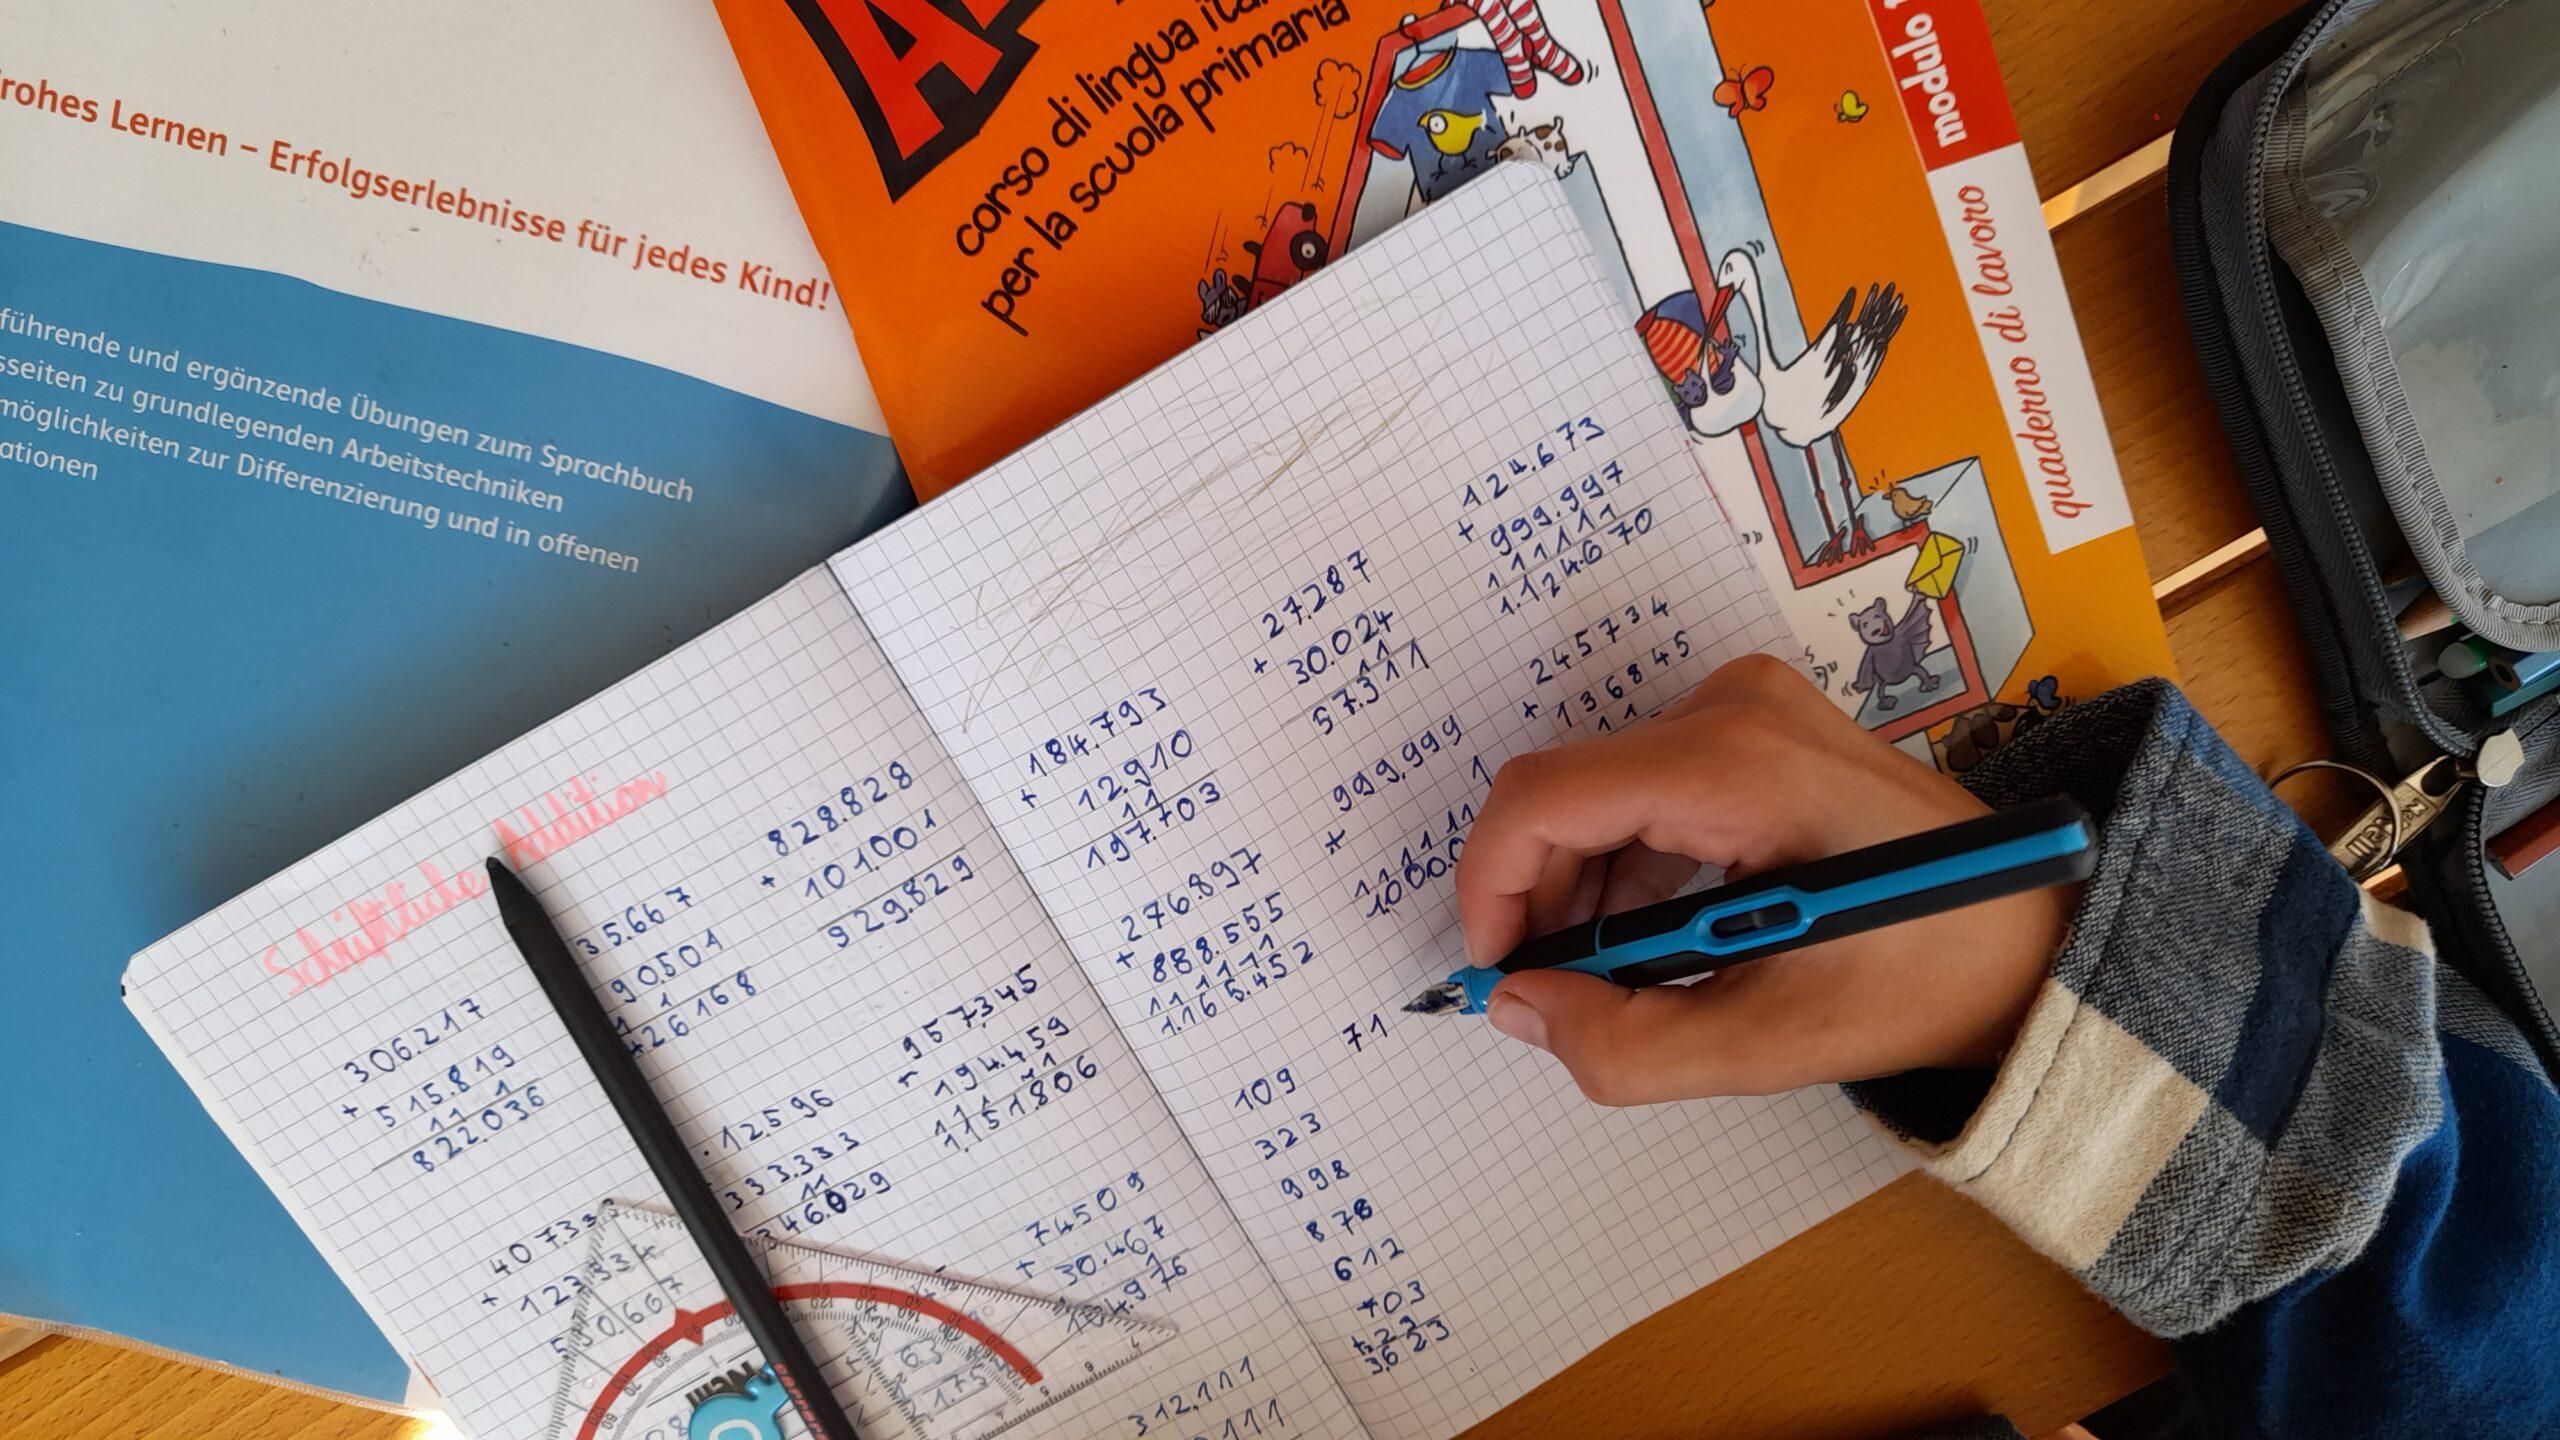 rohes Lernen – Erfolgserlebnisse für jedes Kind!
führende und ergänzende Übungen zum Sprachbuch
sseiten zu grundlegenden Arbeitstechniken
möglichkeiten zur Differenzierung und in offenen
ationen
corso di lingua
per la scuola primaria
modulo
quaderno di lavoro
Schriftliche Addition
306.217
+ 515.819
11 1
822.036
35.667
90.501
1 1
426168
828.828
+ 101.001
929.829
40733
+
12.596
333.333
11
346.029
957.345
+ 194.459
1151.806
74509
+ 30.467
312.111
111
184.793
+ 12.910
11
197.703
27.287
+ 30.024
11
57.311
124.673
+ 999.997
11111
1.124.670
276.897
+ 888.555
11111
1.165.452
999.999
+ 1
111111
1.000.0
245734
+ 136845
71
109
323
998
876
612
703
+ 29
3.623